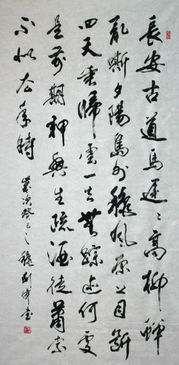 長安古道馬遲〻高柳蟬
亂嘶夕陽島外秋風原上目斷
四天垂歸雲一去無蹤迹何處
是前期狎興生疏酒徒蕭索
不似去年時
癸巳之秋